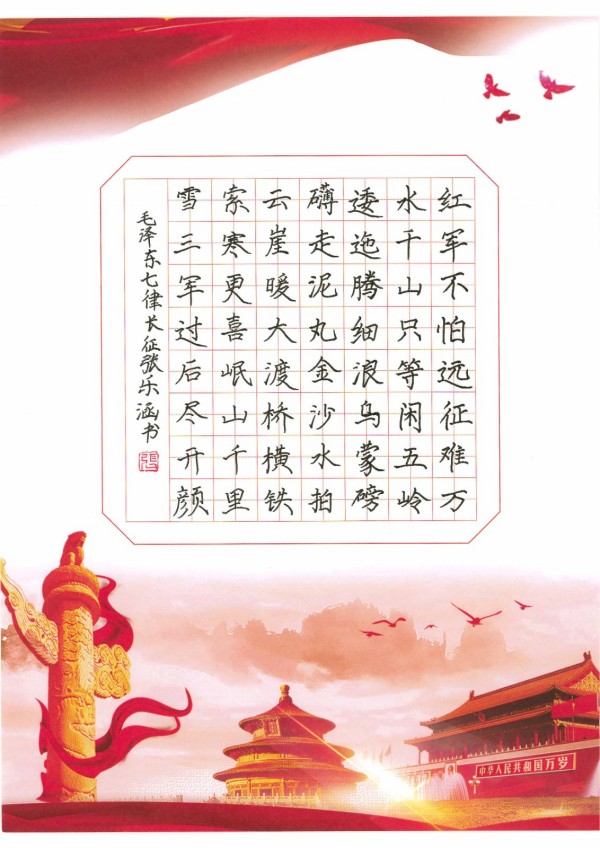 红军不怕远征难万
水千山只等闲五岭
逶迤腾细浪乌蒙磅
礴走泥丸金沙水拍
云崖暖大渡桥横铁
索寒更喜岷山千里
雪三军过后尽开颜
毛泽东七律长征张乐涵书
中华人民共和国万岁